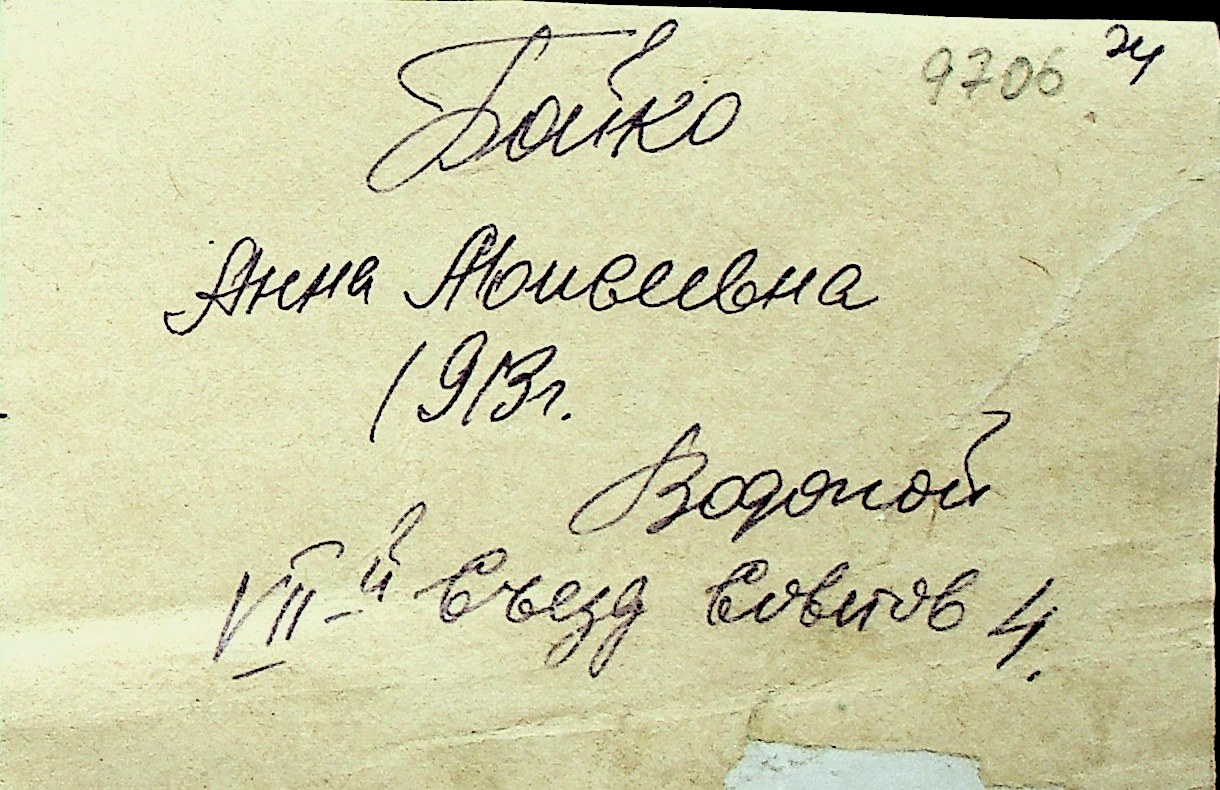 9706 74
Бойко
Анна Моисеевна
1913г.
Водопой
VII-й Съезд Советов 4.